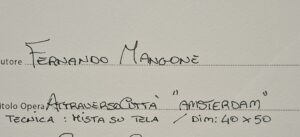 utore Fernando Mangone
itolo Opera Attraverso Città "Amsterdam"
Tecnica : Mista su tela / Dim: 40 x 50